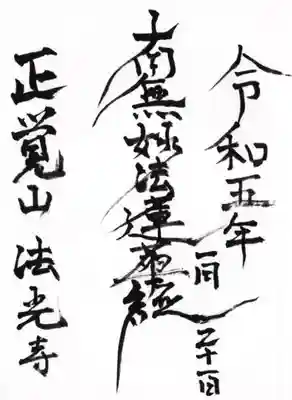 令和五年 一月 二十一日
南無妙法蓮華経
正覚山 法光寺